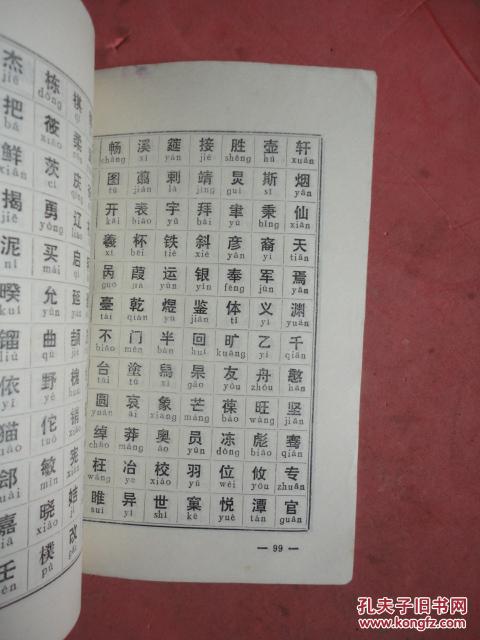 畅 溪 莚 接 胜 壶 轩
chàng xī yán jiē shèng hú xuān
图 剌 靖 炅 斯 烟
tú là jìng guì sī yān
开 表 宇 拜 聿 秉 仙
kāi biǎo yǔ bài yù bǐng xiān
羲 杯 铁 斜 彦 裔 天
xī bēi tiě xié yàn yì tiān
呙 葭 运 银 奉 军 焉
yùn yín fèng jūn yān
臺 乾 煜 鉴 体 义 渊
tái qián yù jiàn tǐ yì yuān
不 门 半 回 旷 乙 千
bù mén bàn huí kuàng yǐ qiān
台 塗 烏 杲 友 舟 憨
tái tú wū gǎo yǒu zhōu hān
圆 哀 象 芒 葆 旺 坚
yuán āi xiàng máng bǎo wàng jiān
绰 莽 奥 员 冻 彪 骞
chāo mǎng ào yún dòng biāo qiān
枉 冶 校 羽 位 攸 专
wǎng yě xiào yǔ wèi yōu zhuān
睢 异 世 窠 悦 潭 官
suī yì shì kē yuè tán guān
— 99 —
杰 栋
jié dòng
把 筱
bǎ xiǎo
鲜 茨
xiān cí
揭 勇
jiē yǒng
泥 买
ní mǎi
暌 允
kuí yǔn
镏 曲
liú qū
依 野
yī yě
猫 佗
māo tuó
郐 敏
kuài mǐn
嘉 晓
jiā xiǎo
壬 樸
rén pǔ
孔夫子旧书网
kongfz.com